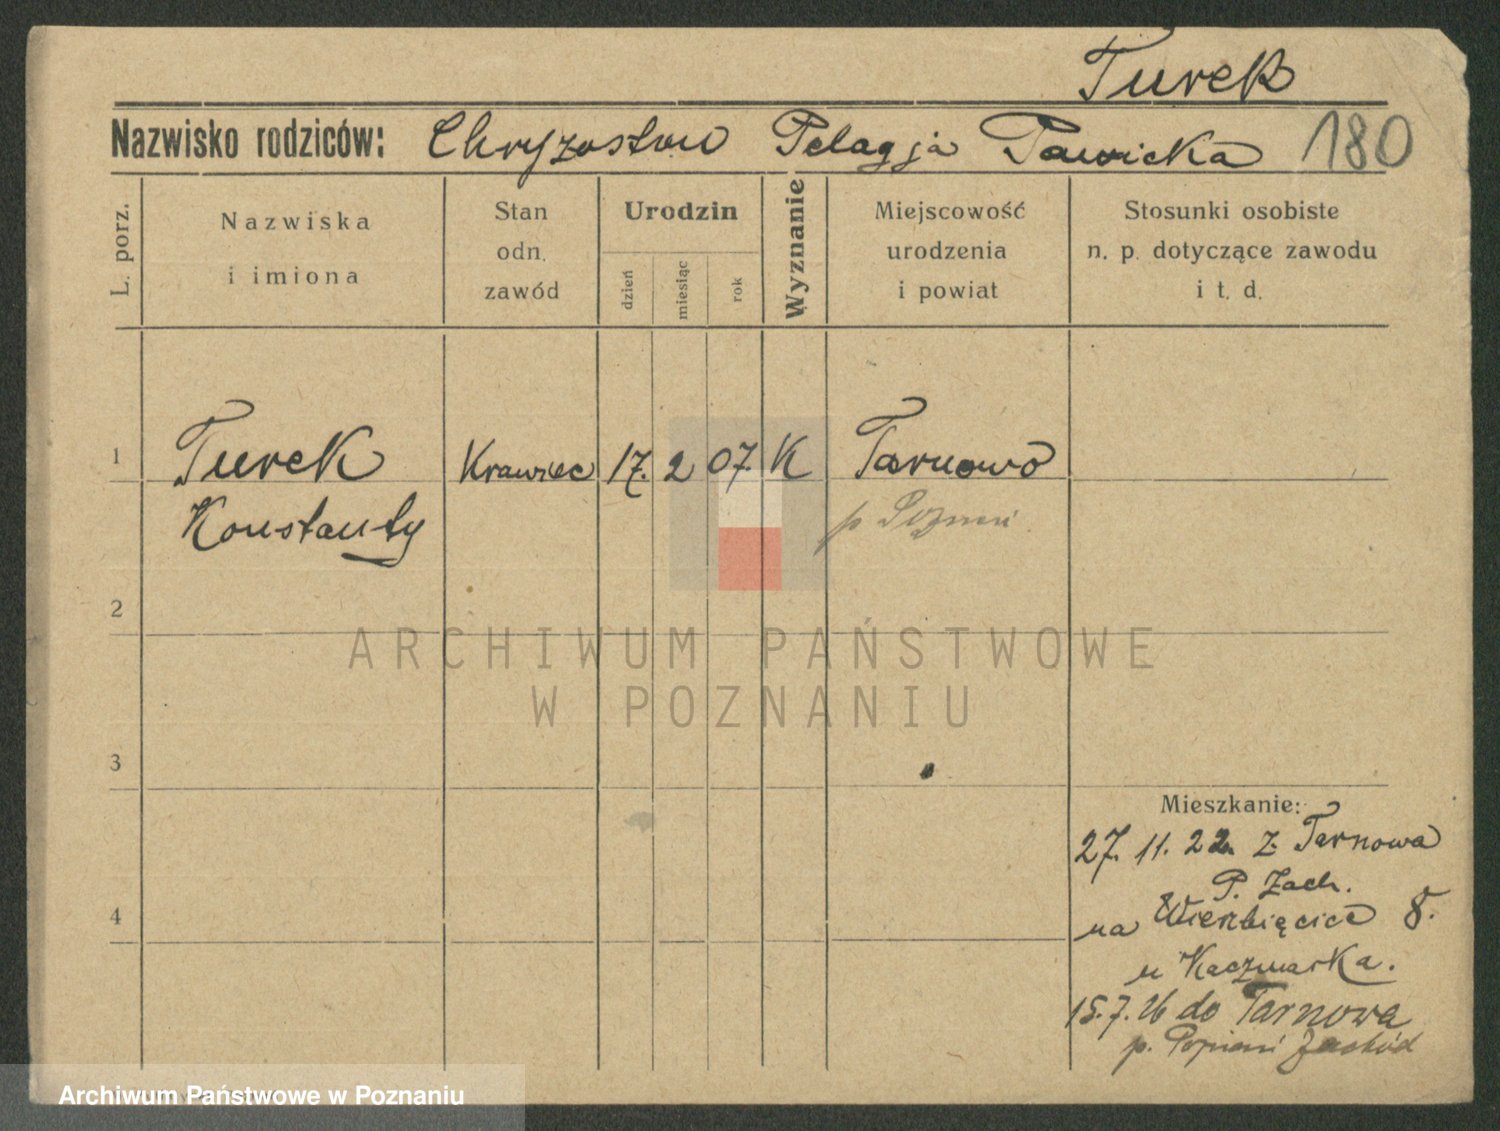 Turek
Nazwisko rodziców: Chryzostom Pelagja Pawicka 180
L. porz.
Nazwiska
i imiona
Stan
odn.
zawód
Urodzin
dzień
miesiąc
rok
Wyznanie
Miejscowość
urodzenia
i powiat
Stosunki osobiste
n. p. dotyczące zawodu
i t. d.
1 Turek Krawiec 17. 2 07. K Tarnowo
Konstanty p Poznań
2
ARCHIWUM PAŃSTWOWE
W POZNANIU
3
Mieszkanie:
27. 11. 22. z Tarnowa
P. Zach.
4
na Wierzbięcice 8.
u Kaczmarka.
15. 7. 26 do Tarnowa
p. Poznań Zachód
Archiwum Państwowe w Poznaniu